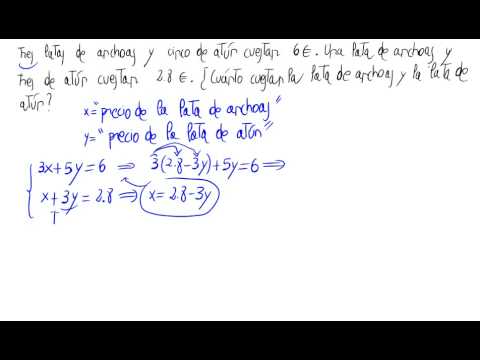 Tres latas de anchoas y cinco de atún cuestan 6 €. Una lata de anchoas y
tres de atún cuestan 2.8 €. ¿Cuánto cuestan la lata de anchoas y la lata de
atún?
x="precio de la lata de anchoas"
y="precio de la lata de atún"
3x+5y=6 ⇒ 3(2.8-3y)+5y=6 ⇒
x+3y=2.8 ⇒ x=2.8-3y